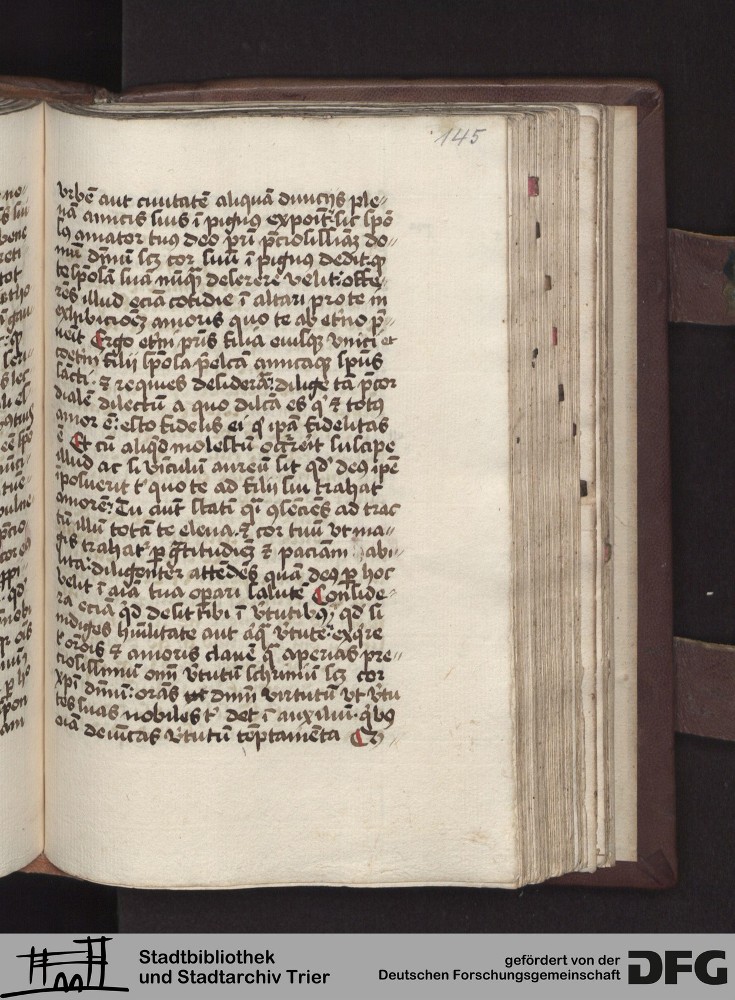 145
vrbē aut ciuitatē aliquā diuicijs ple〃
nā amicis suis ī pignus expoīt: sic spō
sus amator tuus deo p̄ri p̄ciosissimā do〃
mū diuinū scz cor suū ī pignus dedit. q
te spōsā suā nūq̄ deserere velit: offe〃
rēs illud eciā cotidie ī altari pro te in
exhibicioēz amoris quo te ab et̓no p̄〃
uēit Ergo et̓ni pr̄is filia eiusq̄ vnici et
coet̓ni filij spōsa p̄elcā amicaq̄ sp̄us
sācti. ⁊ requies desiderā: dilige tā p̄cor
dialē dilectū a quo dilcā es q̓ ⁊ totus
amor ē: esto fidelis ei q̓ ipā fidelitas
ē Et cū aliqd molestū occ̓reit suscipe
illud ac si viculū aureū sit qd̓ deus ipē
īposuerit t̓ quo te ad filij sui trahat
amorē: Tu aut̄ statī ad trac
tū illū totā te eleua. ⁊ cor tuū vt ma〃
gis trahat̓ p g̓titudiez ⁊ paciām abi〃
lita: diligenter attēdēs quā deus p hoc
velit ī aīa tua opari salutē Conside〃
ra eciā qd desit tibi ī v̓tutibus: qd̓ si
indiges hūilitate aut alia v̓tute: exq̓re
⁊ amoris clauē q̓ aperias pre〃
ciosissimū omī v̓tutū schriniū scz cor
xp̄i diuinū: oras dnm̄ virtutū vt v̓tu
tes suas nobiles t̓ det ī auxiliū. q̓bus
oīā deuicas v̓tutū tēptamēta
Stadtbibliothek
und Stadtarchiv Trier
gefördert von der
Deutschen Forschungsgemeinschaft
DFG